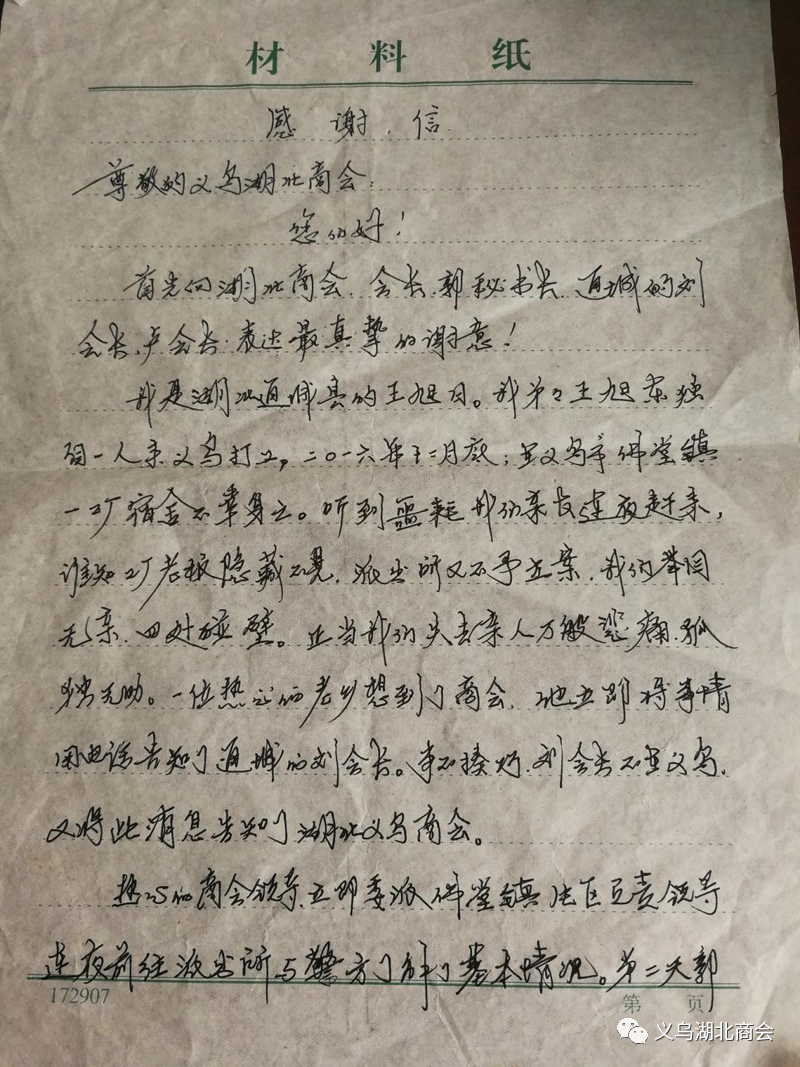 材料纸
感谢信
尊敬的义乌湖北商会:
您们好!
首先向湖北商会、会长、郭秘书长、通城的刘
会长、卢会长.表达最真挚的谢意!
我是湖北通城县的王旭日。我弟々王旭东独
自一人来义乌打工,二〇一六年十二月底;在义乌市佛堂镇
一工厂宿舍不幸身亡。听到噩耗我们亲友连夜赶来,
谁知工厂老板隐藏不见,派出所又不予立案,我们举目
无亲、四处碰壁。正当我们失去亲人万般悲痛、孤
独无助。一位热心的老乡想到了商会,他立即将事情
用电话告知了通城的刘会长。事不凑巧,刘会长不在义乌,
又将此消息告知了湖北义乌商会。
热心的商会领导,立即委派佛堂镇片区负责领导
连夜前往派出所与警方了解了基本情况。第二天郭
172907
第 页
义乌湖北商会